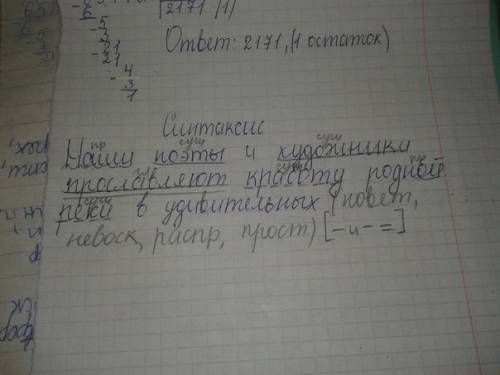 2171 (1)
-6
-5
3
-21
21
-4
3
1
Ответ: 2171, (1 остаток)
Синтаксис
пр сущ сущ
Наши поэты и художники
гл сущ пр
прославляют красоту родной
сущ
реки в удивительных (повет,
невоск, распр, прост) [-и-=]